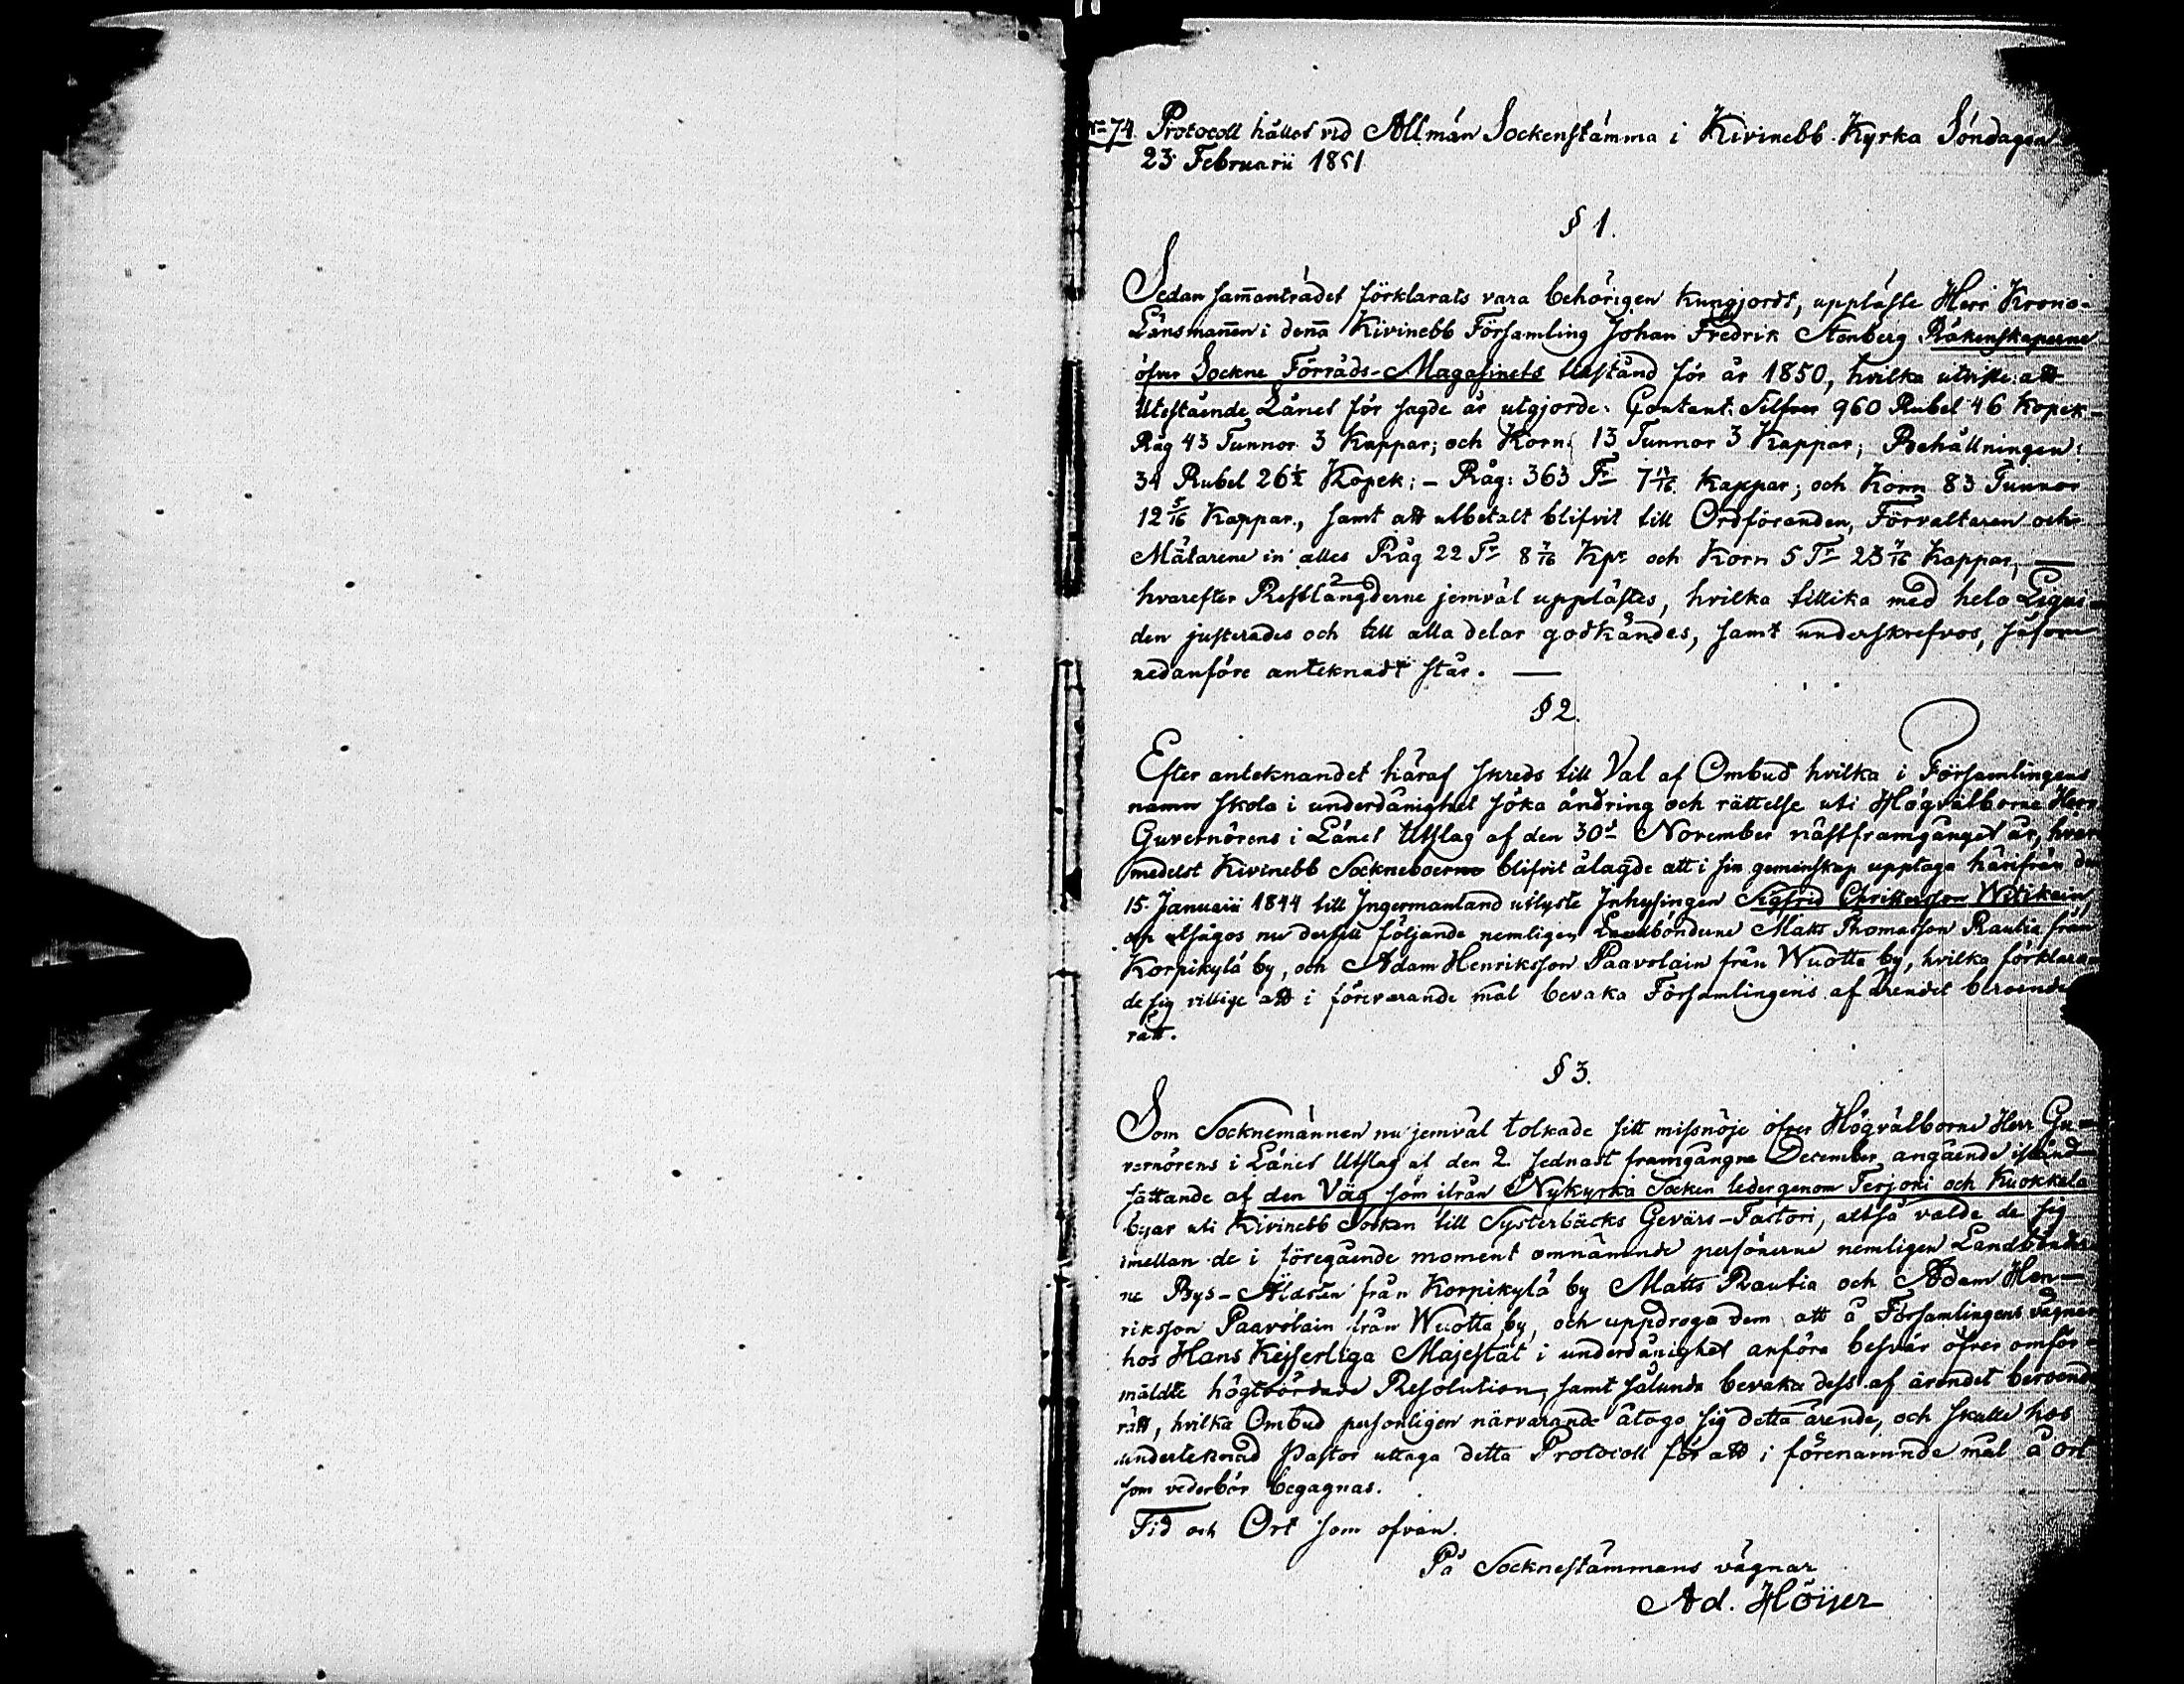 74. Protocoll hållet vid Allmän Sockenstämma i Kivinebb Kyrka Söndagen
23 Februarii 1851
§ 1.
Sedan sam̄anträdet förklarats vara behörigen kungjordt, uppläste Herr Krono-
Länsman̄en i den̄a Kivinebb Församling Johan Fredrik Stenberg Räkenskaperne
öfver Sockne Förråds-Magasinets tillstånd för år 1850, hvilka utviste: att
Utestående Lånet för sagde år utgjorde: Contant: Silfver 960 Rubel 46 Kopek-
Råg 43 Tunnor 3 Kappar; och Korn: 13 Tunnor 3 Kappar; Behållningen:
34 Rubel 26½ Kopek: - Råg: 363 Tr 7 Kappar; och Korn 83 Tunnor
12 5/16 Kappar, samt att utbetalt blifvit till Ordföranden, Förvaltaren och
Mätarene in alles Råg 22 Tr 8 7/16 Kpr och Korn 5 Tr 23 7/16 Kappar, —
hvarefter Restlängderne jemväl upplästes, hvilka tillika med hela Liqui-
den justerades och till alla delar godkändes, samt underskrefvos, såsom
nedanföre anteknadt står. —
§ 2.
Efter anteknandet häraf skreds till Val af Ombud hvilka i Församlingens
namn skola i underdånighet söka ändring och rättelse uti Högvälborne Herr
Guvernörens i Länet Utslag af den 30de November nästframgånget år, hvar
medelst Kivinebb Sockneboerne blifvit ålagde att i sin gemenskap upptaga härifrån den
15 Januarii 1844 till Ingermanland utlyste Inhysingen Sigfrid Christersson Witikain,
utsågos nu dertill följande nemligen Landbönderne Matts Thomasson Rautia från
Korpikylä by, och Adam Henriksson Paavolain från Wuotta by, hvilka förklara-
de sig villige att i förevarande mål bevaka Församlingens af ärendet beroende
rätt.
§ 3.
Som Socknemännen nu jemväl tolkade sitt missnöje öfver Högvälborne Herr Gu-
vernörens i Länet Utslag af den 2 sednast framgångne December angående istånd
sättande af den Väg som ifrån Nykyrka Socken leder genom Terjoki och Kuokkala
byar uti Kivinebb Socken till Systerbäcks Gevärs-Factori, altså valde de sig
imellan de i föregående moment omnämnde personerne nemligen Landbönder
ne Bys-Äldsten från Korpikylä by Matts Rautia och Adam Hen-
riksson Paavolain från Wuotta by, och uppdroga dem att å Församlingens vägnar
hos Hans Kejserliga Majestät i underdånighet anföra besvär öfver omför-
mäldte högtvördade Resolution, samt sålunda bevaka dess af ärendet beroende
rätt, hvilka Ombud personligen närvarande åtogo sig detta ärende, och skulle hos
underteknad Pastor uttaga detta Protocoll för att i förenämnde mål å ort
som vederbör begagnas.
Tid och Ort som ofvan.
På Socknestämmans vägnar
Ad. Höijer